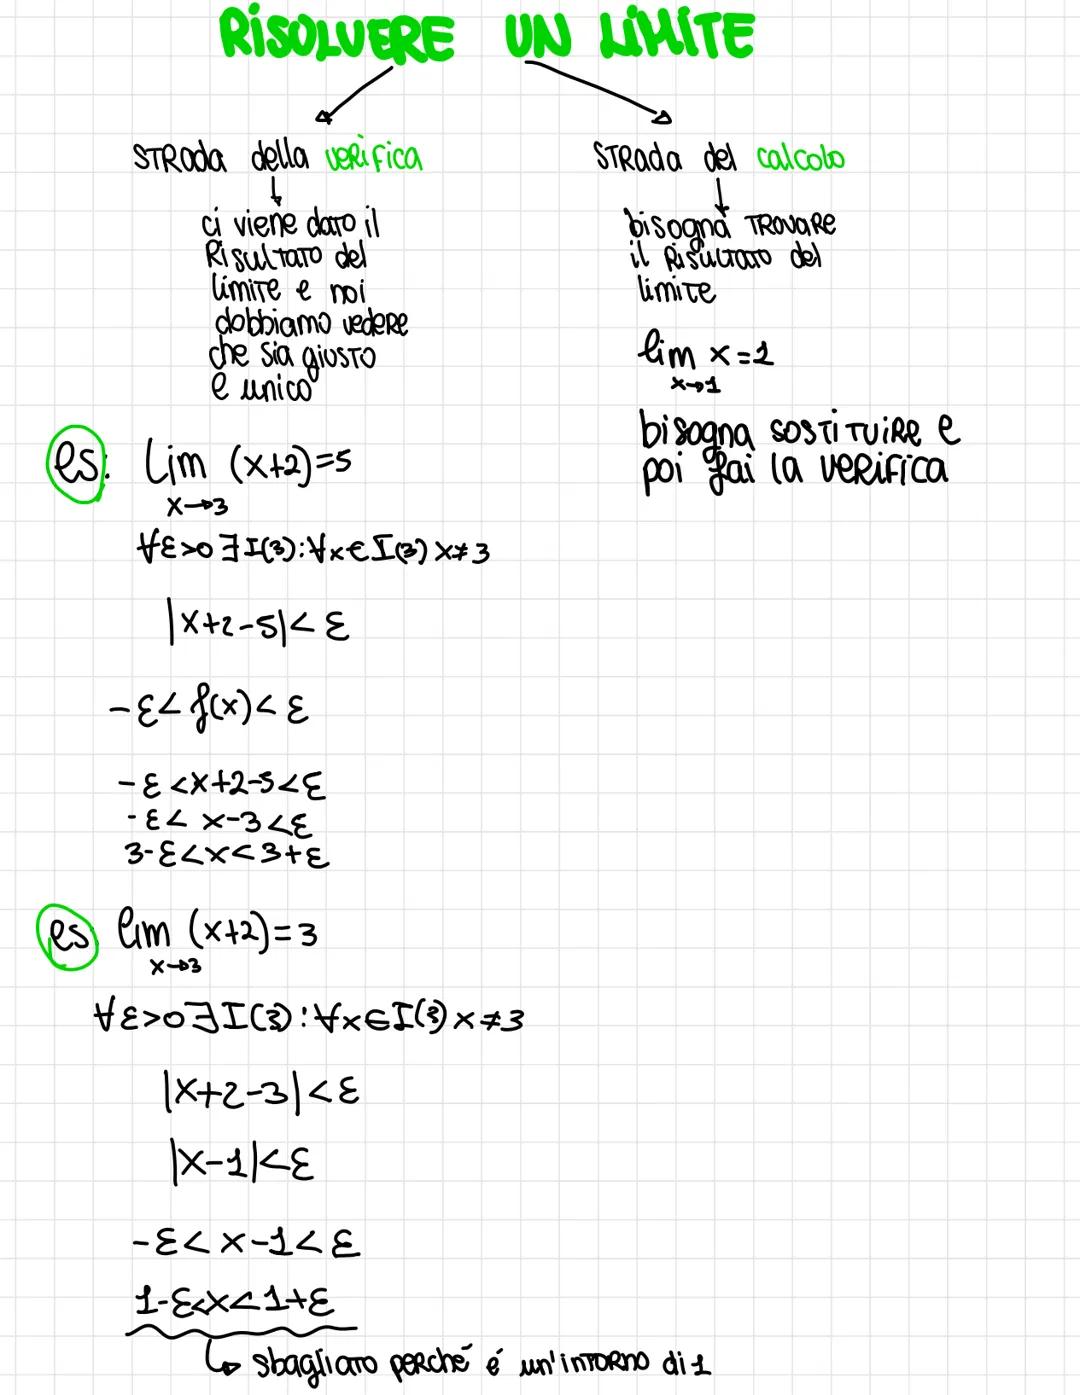 RISOLVERE UN LIMITE
STRADA della verifica
ci viene dato il
RISULTATO del
limite e noi
dobbiamo vedere
che sia giusto
e unico
STRADA del calcolo
bisogna TROVARE
il RISULTATO del
limite
lim x=1
x→1
bisogna SOSTITUIRE e
poi fai la verifica
es: lim (x+2)=5
x→3
∀ε>0 ∃ I(3):∀x∈I(3) x≠3
|x+2-5|<ε
-ε<f(x)<ε
-ε<x+2-5<ε
-ε< x-3<ε
3-ε<x<3+ε
es lim (x+2)=3
x→3
∀ε>0∃I(3):∀x∈I(3) x≠3
|x+2-3|<ε
|x-1|<ε
-ε<x-1<ε
1-ε<x<1+ε
↳ sbagliato perché é un'intorno di 1